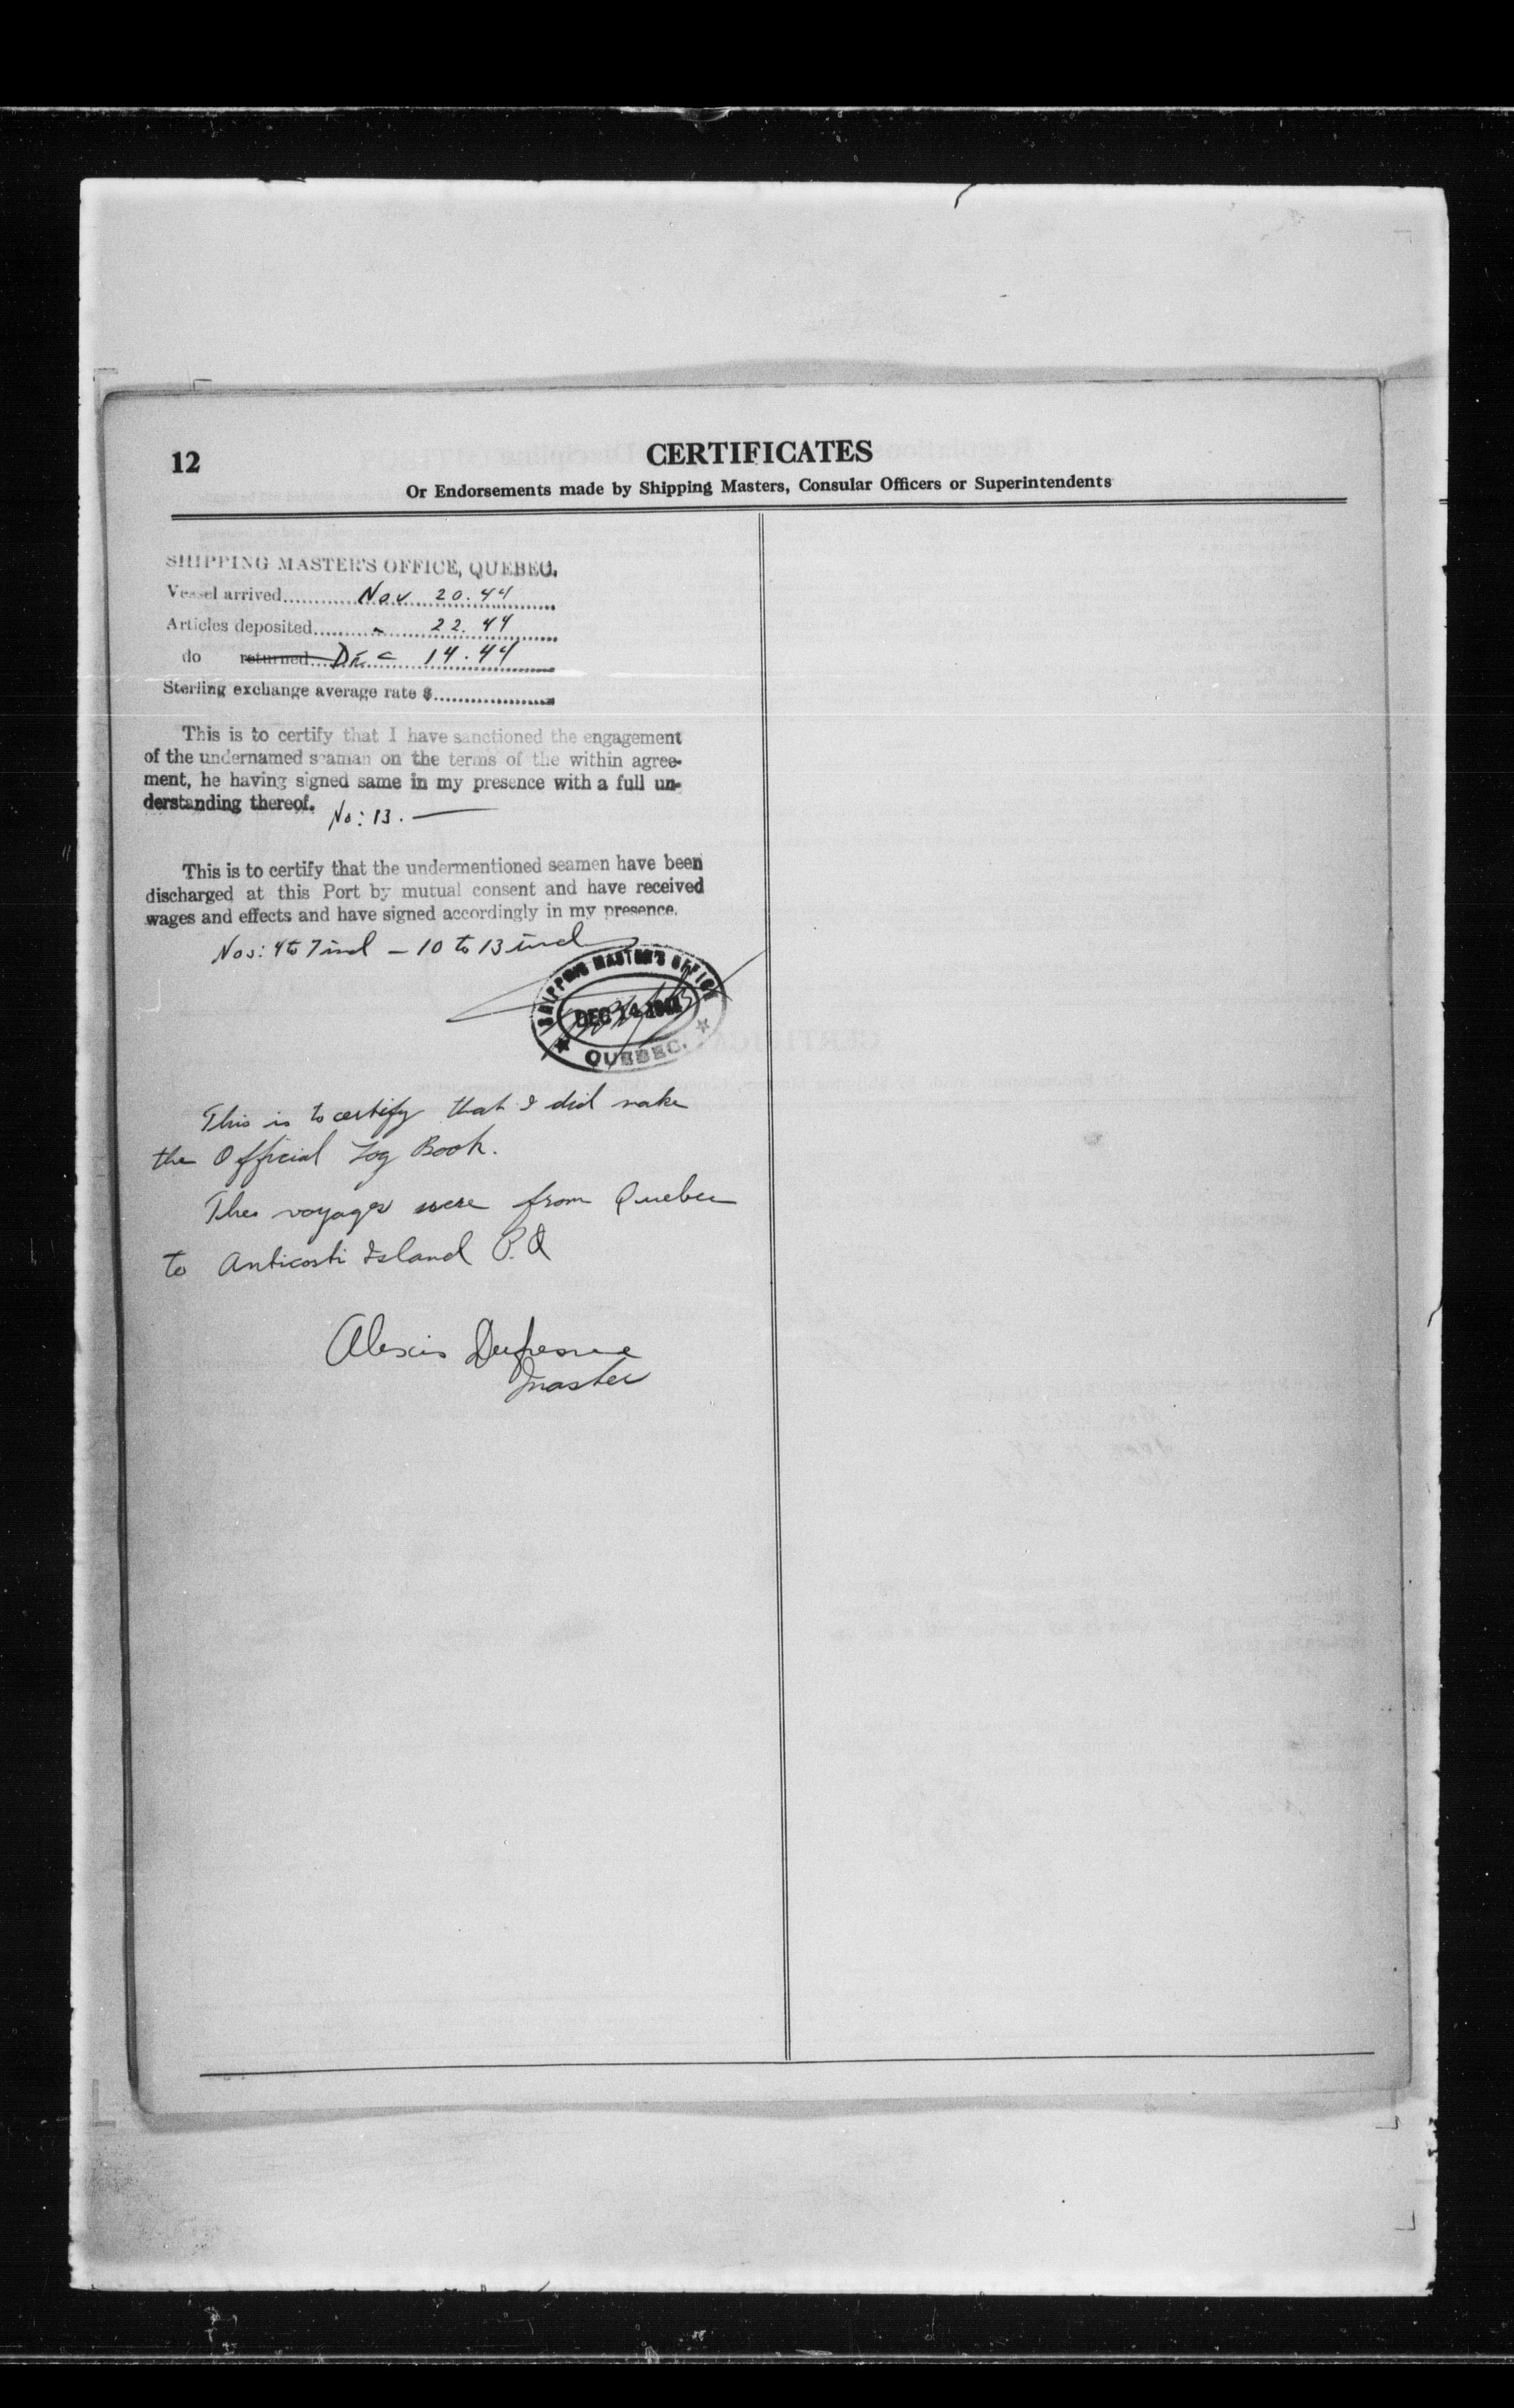 12
CERTIFICATES
Or Endorsements made by Shipping Masters, Consular Officers or Superintendents
SHIPPING MASTER'S OFFICE, QUEBEC.
Vessel arrived............Nov 20.44
Articles deposited..........." 22.44
do returned....Dec 14.44
Sterling exchange average rate $....................
This is to certify that I have sanctioned the engagement
of the undernamed seaman on the terms of the within agree-
ment, he having signed same in my presence with a full un-
derstanding thereof.
No: 13. —
This is to certify that the undermentioned seamen have been
discharged at this Port by mutual consent and have received
wages and effects and have signed accordingly in my presence.
Nos: 4 to 7 incl – 10 to 13 incl
SHIPPING MASTER'S OFFICE
DEC 14 1944
QUEBEC.
This is to certify that I did make
the Official Log Book.
Thes voyages were from Quebec
to Anticosti Island P.Q
Alexis Dufresne
Master